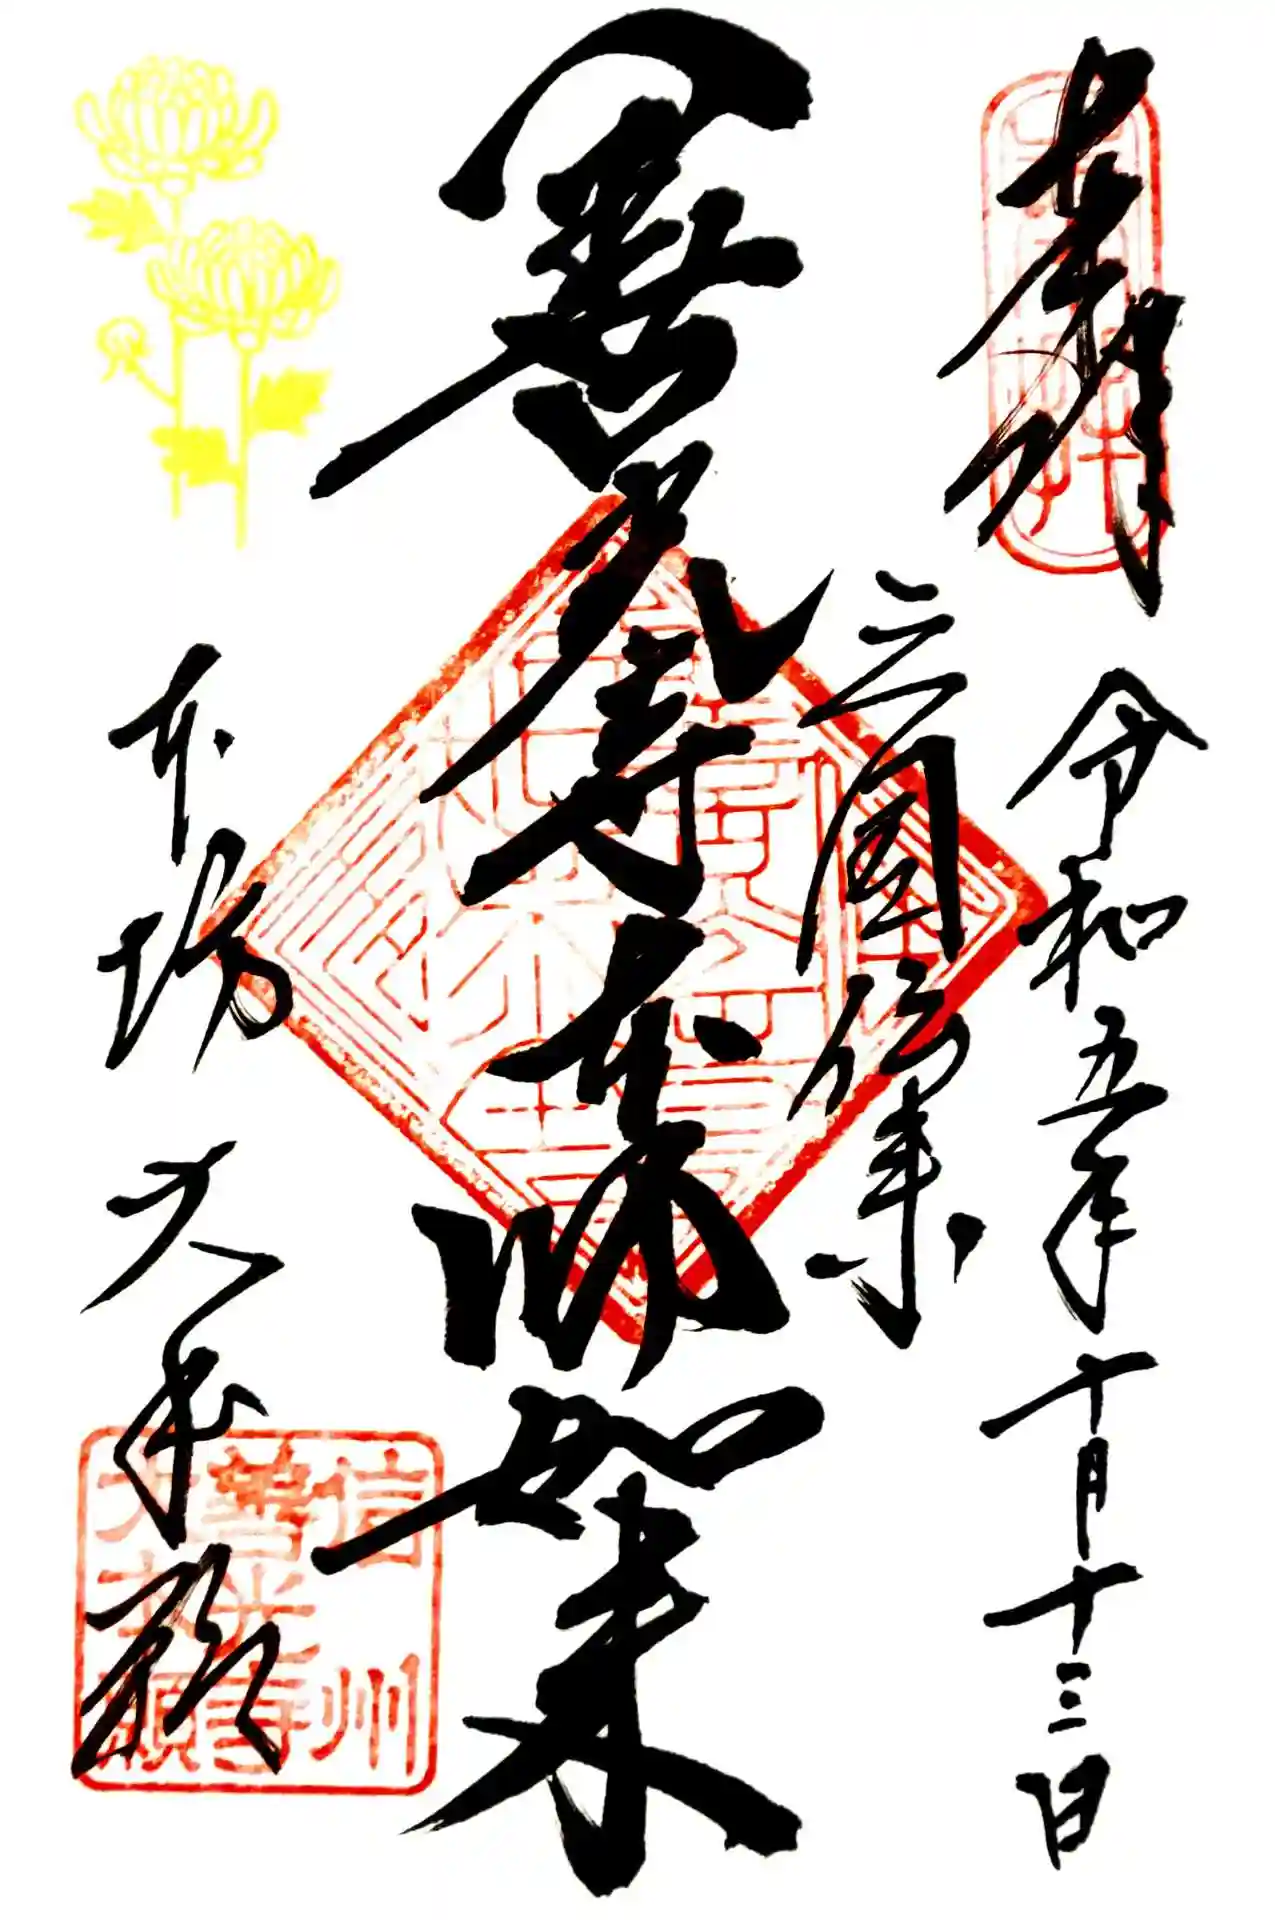 奉拝
令和五年十月十三日
三国伝来
善光寺本師如来
本坊 大本願
信州
善光寺
大本願